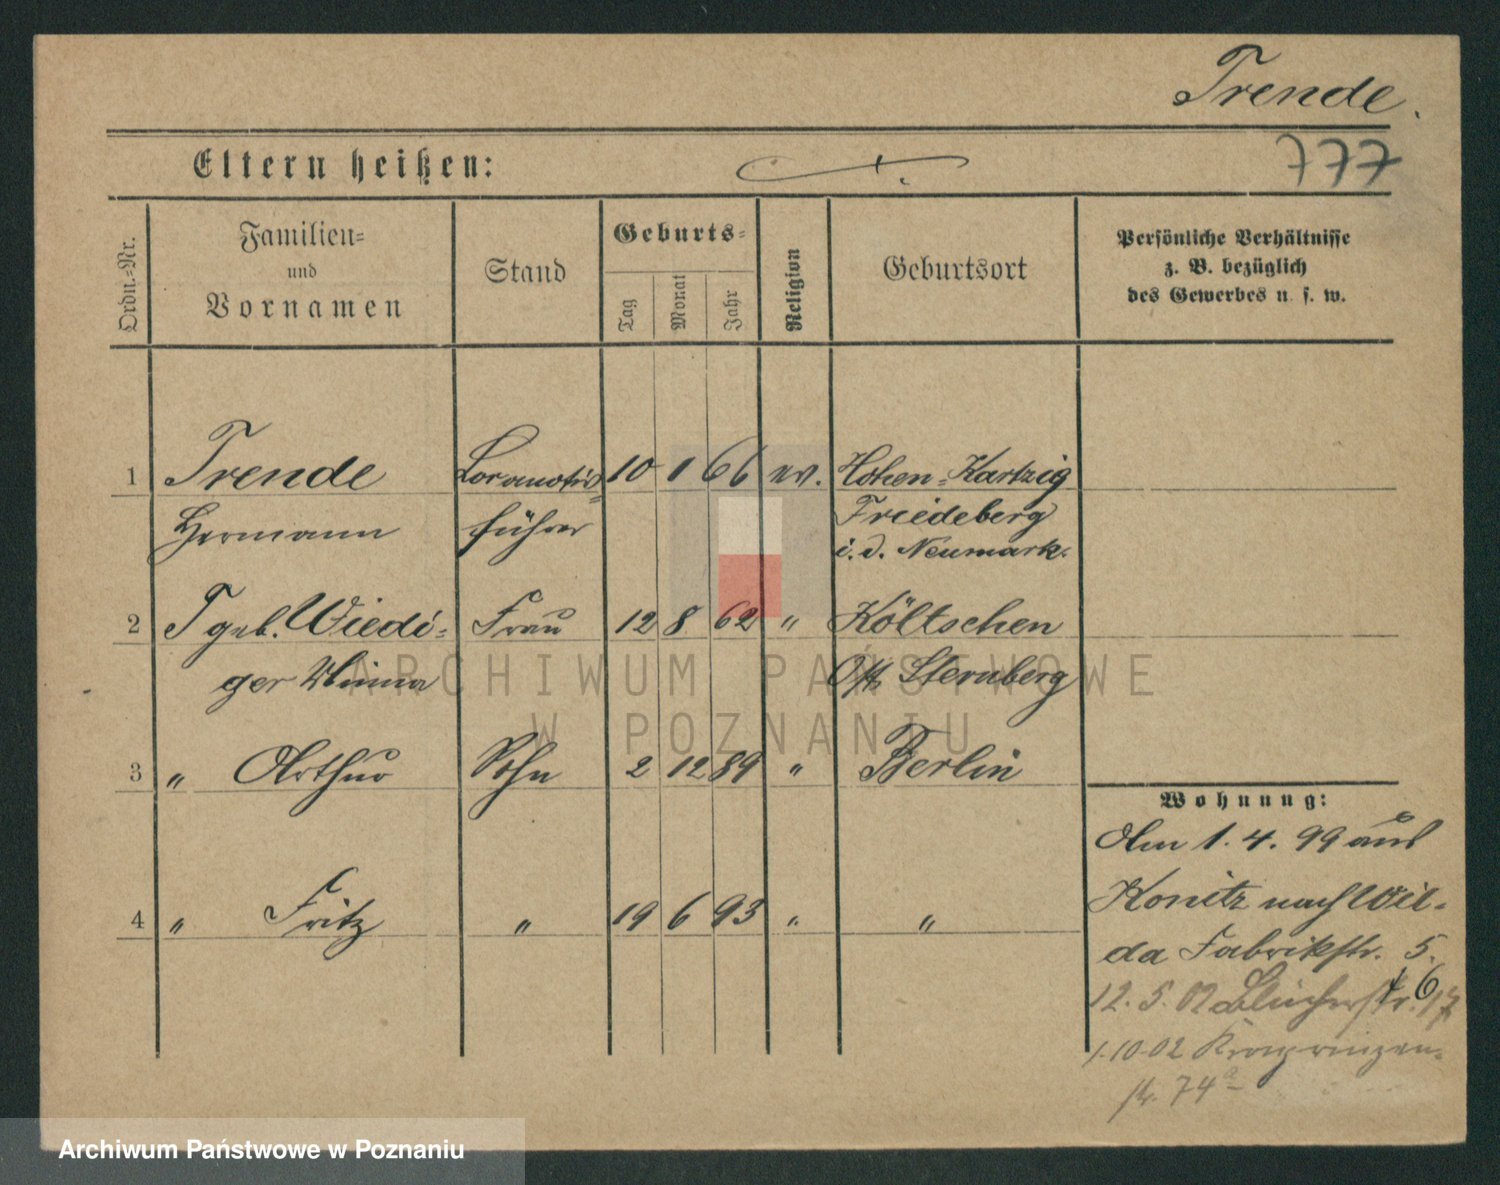 Trende.
Eltern heißen:
777
Ordn.-Nr.
Familien-
und
Vornamen
Stand
Geburts-
Tag
Monat
Jahr
Religion
Geburtsort
Persönliche Verhältnisse
z. B. bezüglich
des Gewerbes u. s. w.
1 Trende Locomotiv- 10 1 66 ev. Hohen-Kartzig
Hermann führer Friedeberg
i. d. Neumark.
2 T geb. Wiedi- Frau 12 8 62 " Költschen
ger Minna Ost Sternberg
3 " Arthur Sohn 2 12 89 " Berlin
4 " Fritz " 19 6 93 " "
Wohnung:
Am 1. 4. 99 aus
Konitz nach Wil-
da Fabrikstr. 5.
12. 5. 02 Blücherstr. 6
1.10.02 Kronprinzen-
str. 74a
ARCHIWUM PAŃSTWOWE
W POZNANIU
Archiwum Państwowe w Poznaniu